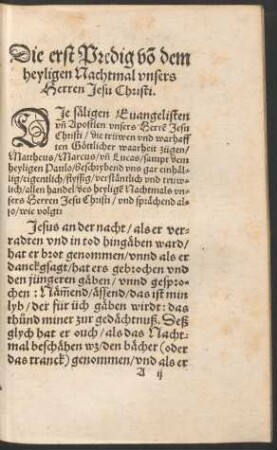 Die erst Predig võ dem
heyligen Nachtmal vnsers
Herren Jesu Christi.
DJe säligen Euangelisten
vñ Apostlen vnsers Herrẽ Jesu
Christi / die trüwen vnd warhaff
ten Göttlicher waarheit zügen /
Mattheus / Marcus / vñ Lucas / sampt dem
heyligen Paulo / beschrybend vns gar einhäl-
lig / eigentlich / flyssig / verständtlich vnd trüw-
lich / allen handel des heyligẽ Nachtmals vn-
sers Herren Jesu Christi / vnd sprächend al-
so / wie volgt:
Jesus an der nacht / als er ver-
radten vnd in tod hingäben ward /
hat er brot genommen / vnnd als er
danckgsagt / hat ers gebrochen vnd
den jüngeren gäben / vnnd gespro-
chen: Näm̃end / ässend / das ist min
lyb / der für üch gäben wirdt: das
thünd miner zur gedächtnuß. Deß
glych hat er ouch / als das Nacht-
mal beschähen wz / den bächer (oder
das tranck) genommen / vnd als er
A ij